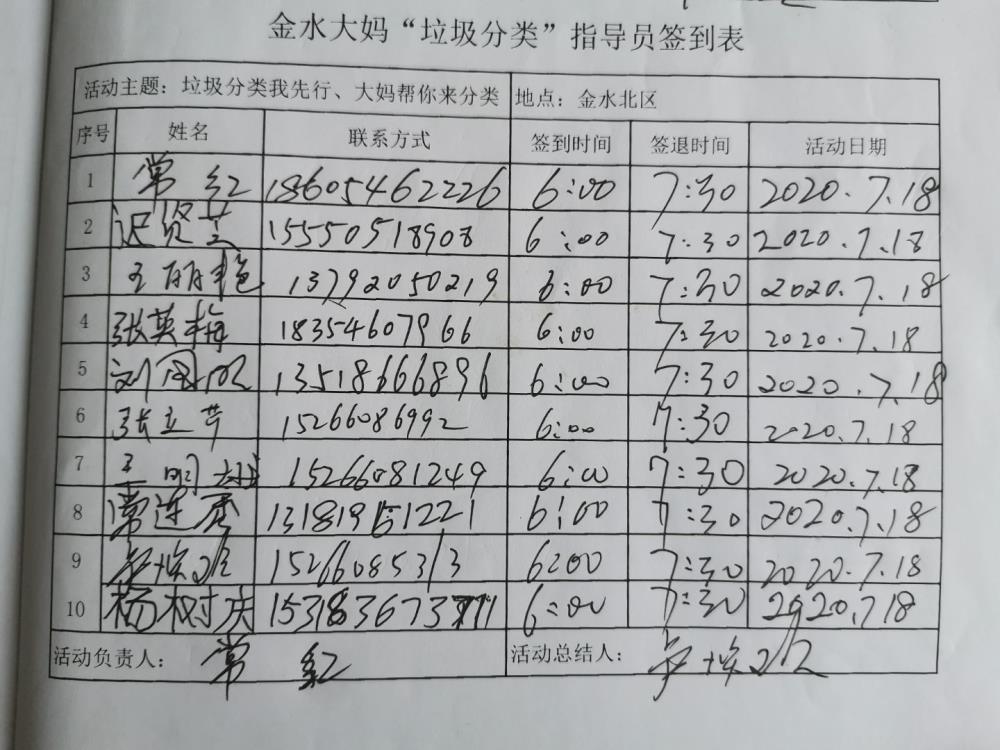 金水大妈“垃圾分类”指导员签到表
活动主题：垃圾分类我先行、大妈帮你来分类 地点：金水北区
序号 姓名 联系方式 签到时间 签退时间 活动日期
1 常红 18605462226 6:00 7:30 2020.7.18
2 迟贤芝 15550518908 6:00 7:30 2020.7.18
3 王丽艳 13792050219 6:00 7:30 2020.7.18
4 张英梅 18354607966 6:00 7:30 2020.7.18
5 刘国 13518666896 6:00 7:30 2020.7.18
6 张立芹 15266086992 6:00 7:30 2020.7.18
7 王明 15266081249 6:00 7:30 2020.7.18
8 常连香 13181951221 6:00 7:30 2020.7.18
9 15266085313 6:00 7:30 2020.7.18
10 杨树庆 6:00 7:30 2020.7.18
活动负责人： 常红 活动总结人：